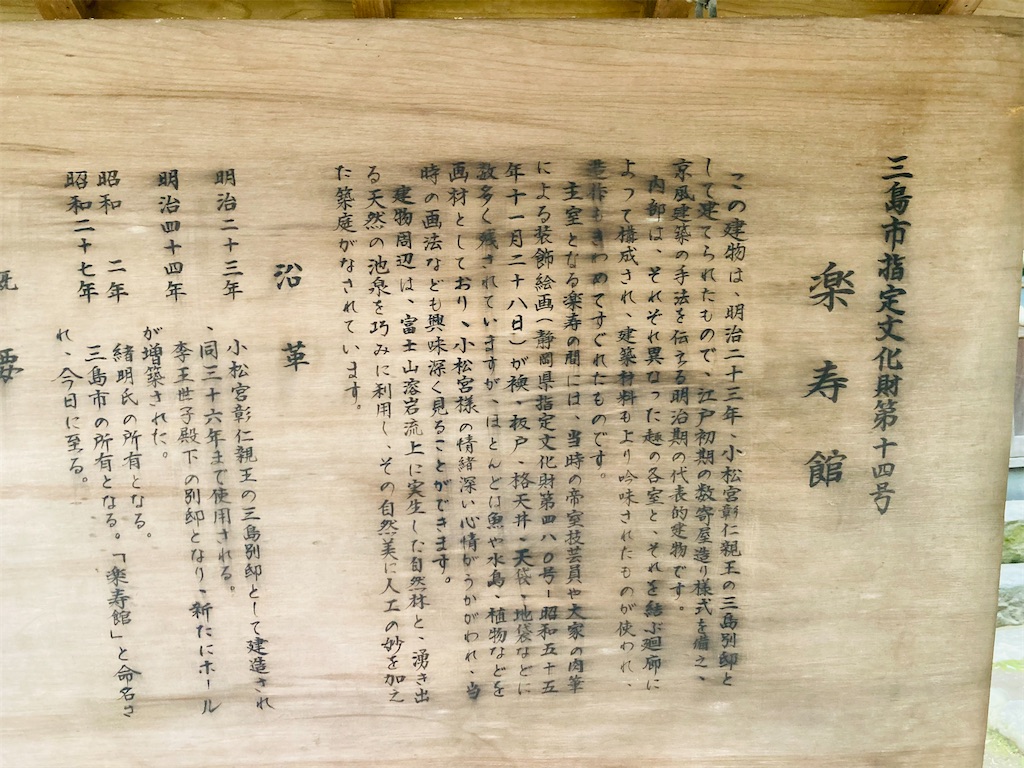 三島市指定文化財第十四号
楽寿館
この建物は、明治二十三年、小松宮彰仁親王の三島別邸と
して建てられたもので、江戸初期の数寄屋造り様式を備え、
京風建築の手法を伝える明治期の代表的建物です。
内部は、それぞれ異なった趣の各室と、それを結ぶ廻廊に
よって構成され、建築材料もより吟味されたものが使われ、
造作もきわめてすぐれたものです。
主室となる楽寿の間には、当時の帝室技芸員や大家の肉筆
による装飾絵画(静岡県指定文化財第四八〇号ー昭和五十五
年十一月二十八日)が襖、板戸、格天井、天袋、地袋などに
数多く残されていますが、ほとんどは魚や水鳥、植物などを
画材としており、小松宮様の情緒深い心情がうかがわれ、当
時の画法なども興味深く見ることができます。
建物周辺は、富士山溶岩流上に実生した自然林と、湧き出
る天然の池泉を巧みに利用し、その自然美に人工の妙を加え
た築庭がなされています。
沿革
明治二十三年 小松宮彰仁親王の三島別邸として建造され
、同三十六年まで使用される。
明治四十四年 李王世子殿下の別邸となり、新たにホール
が増築された。
昭和 二年 緒明氏の所有となる。
昭和二十七年 三島市の所有となる。「楽寿館」と命名さ
れ、今日に至る。
概要